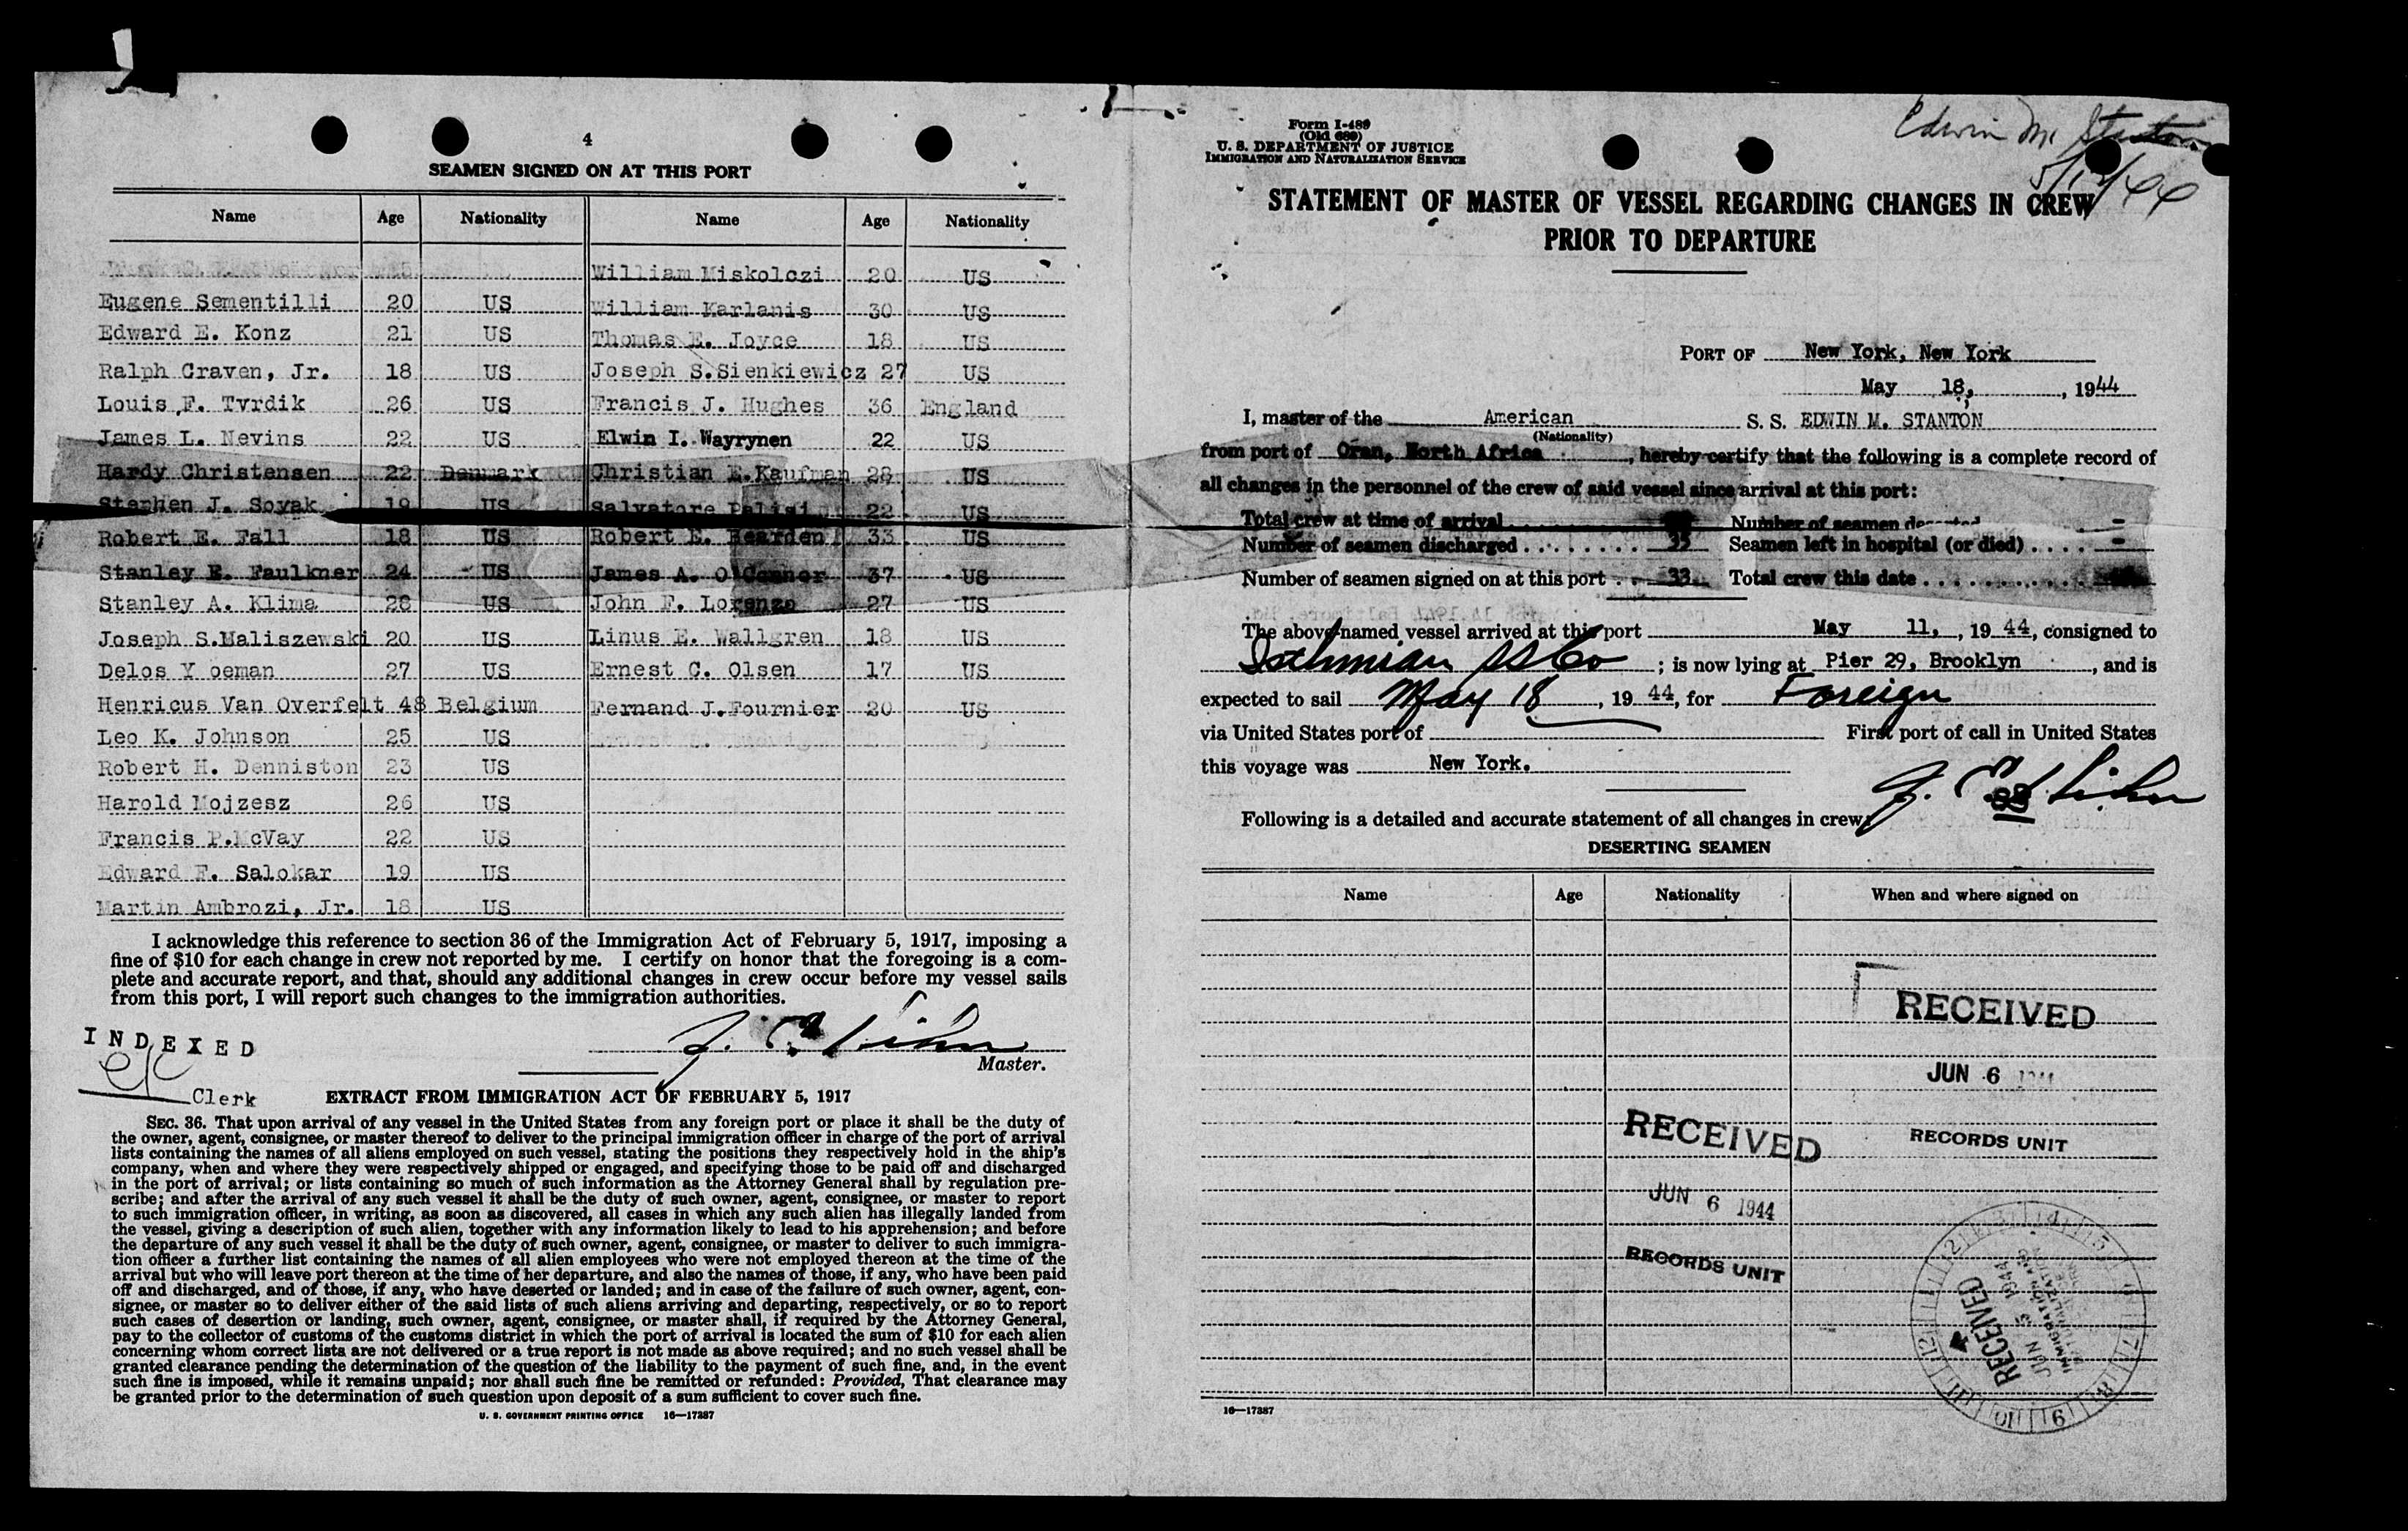 4
SEAMEN SIGNED ON AT THIS PORT
Name Age Nationality Name Age Nationality
William Miskolczi 20 US
Eugene Sementilli 20 US William Karlanis 30 US
Edward E. Konz 21 US Thomas E. Joyce 18 US
Ralph Craven, Jr. 18 US Joseph S.Sienkiewicz 27 US
Louis F. Tvrdik 26 US Francis J. Hughes 36 England
James L. Nevins 22 US Elwin I. Wayrynen 22 US
Hardy Christensen 22 Denmark Christian E.Kaufman 28 US
Stephen J. Soyak 19 US Salvatore Palisi 22 US
Robert E. Fall 18 US Robert E. Bearden 33 US
Stanley E. Faulkner 24 US James A. O'Connor 37 US
Stanley A. Klima 28 US John F. Lorenzo 27 US
Joseph S.Maliszewski 20 US Linus E. Wallgren 18 US
Delos Y oeman 27 US Ernest C. Olsen 17 US
Henricus Van Overfelt 48 Belgium Fernand J.Fournier 20 US
Leo K. Johnson 25 US
Robert H. Denniston 23 US
Harold Mojzesz 26 US
Francis P.McVay 22 US
Edward F. Salokar 19 US
Martin Ambrozi, Jr. 18 US
I acknowledge this reference to section 36 of the Immigration Act of February 5, 1917, imposing a
fine of $10 for each change in crew not reported by me. I certify on honor that the foregoing is a com-
plete and accurate report, and that, should any additional changes in crew occur before my vessel sails
from this port, I will report such changes to the immigration authorities.
INDEXED
Master.
Clerk
EXTRACT FROM IMMIGRATION ACT OF FEBRUARY 5, 1917
SEC. 36. That upon arrival of any vessel in the United States from any foreign port or place it shall be the duty of
the owner, agent, consignee, or master thereof to deliver to the principal immigration officer in charge of the port of arrival
lists containing the names of all aliens employed on such vessel, stating the positions they respectively hold in the ship's
company, when and where they were respectively shipped or engaged, and specifying those to be paid off and discharged
in the port of arrival; or lists containing so much of such information as the Attorney General shall by regulation pre-
scribe; and after the arrival of any such vessel it shall be the duty of such owner, agent, consignee, or master to report
to such immigration officer, in writing, as soon as discovered, all cases in which any such alien has illegally landed from
the vessel, giving a description of such alien, together with any information likely to lead to his apprehension; and before
the departure of any such vessel it shall be the duty of such owner, agent, consignee, or master to deliver to such immigra-
tion officer a further list containing the names of all alien employees who were not employed thereon at the time of the
arrival but who will leave port thereon at the time of her departure, and also the names of those, if any, who have been paid
off and discharged, and of those, if any, who have deserted or landed; and in case of the failure of such owner, agent, con-
signee, or master so to deliver either of the said lists of such aliens arriving and departing, respectively, or so to report
such cases of desertion or landing, such owner, agent, consignee, or master shall, if required by the Attorney General,
pay to the collector of customs of the customs district in which the port of arrival is located the sum of $10 for each alien
concerning whom correct lists are not delivered or a true report is not made as above required; and no such vessel shall be
granted clearance pending the determination of the question of the liability to the payment of such fine, and, in the event
such fine is imposed, while it remains unpaid; nor shall such fine be remitted or refunded: Provided, That clearance may
be granted prior to the determination of such question upon deposit of a sum sufficient to cover such fine.
U. S. GOVERNMENT PRINTING OFFICE 16—17387
Form I-489
(Old 689)
U. S. DEPARTMENT OF JUSTICE
IMMIGRATION AND NATURALIZATION SERVICE
Edwin M. Stanton
STATEMENT OF MASTER OF VESSEL REGARDING CHANGES IN CREW
PRIOR TO DEPARTURE
PORT OF New York, New York
May 18, 1944
I, master of the American S. S. EDWIN M. STANTON
(Nationality)
from port of Oran, North Africa, hereby certify that the following is a complete record of
all changes in the personnel of the crew of said vessel since arrival at this port:
Total crew at time of arrival Number of seamen deserted -
Number of seamen discharged 35 Seamen left in hospital (or died) -
Number of seamen signed on at this port 33 Total crew this date
The above-named vessel arrived at this port May 11, 1944, consigned to
Isthmian SS Co ; is now lying at Pier 29, Brooklyn, and is
expected to sail May 18, 1944, for Foreign
via United States port of First port of call in United States
this voyage was New York.
Following is a detailed and accurate statement of all changes in crew:
DESERTING SEAMEN
Name Age Nationality When and where signed on
RECEIVED
JUN 6 1944
RECORDS UNIT
RECEIVED
JUN 6 1944
RECORDS UNIT
RECEIVED
JUN 5 1944
IMMIGRATION AND
16—17387